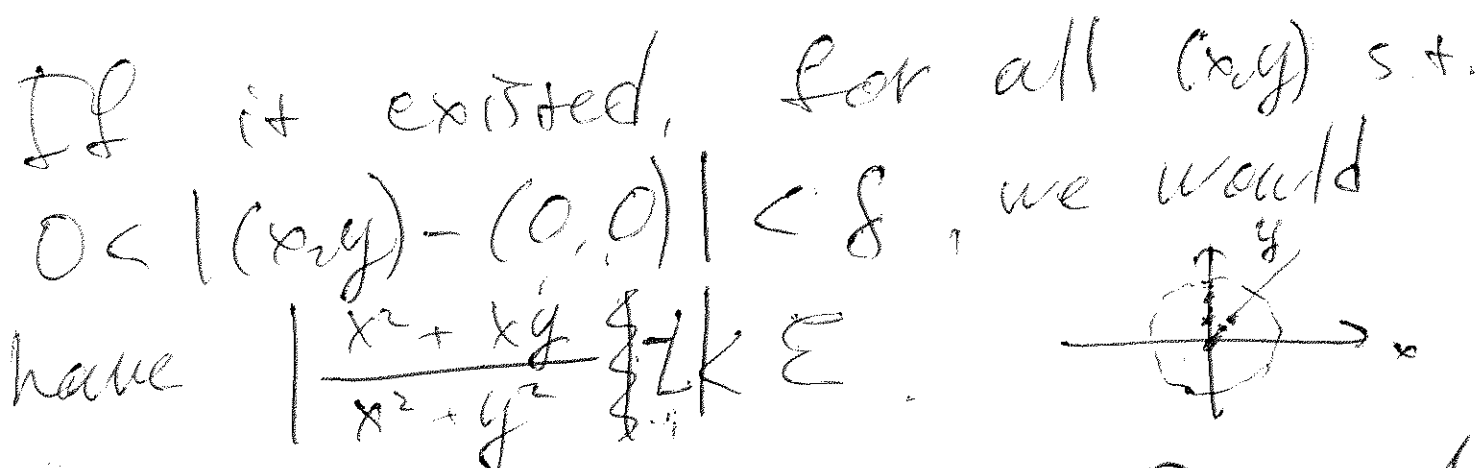 If it existed, for all (x,y) s.t.
0 < |(x,y) - (0,0)| < δ, we would
have | (x² + xy)/(x² + y²) - L | < ε.
y
x